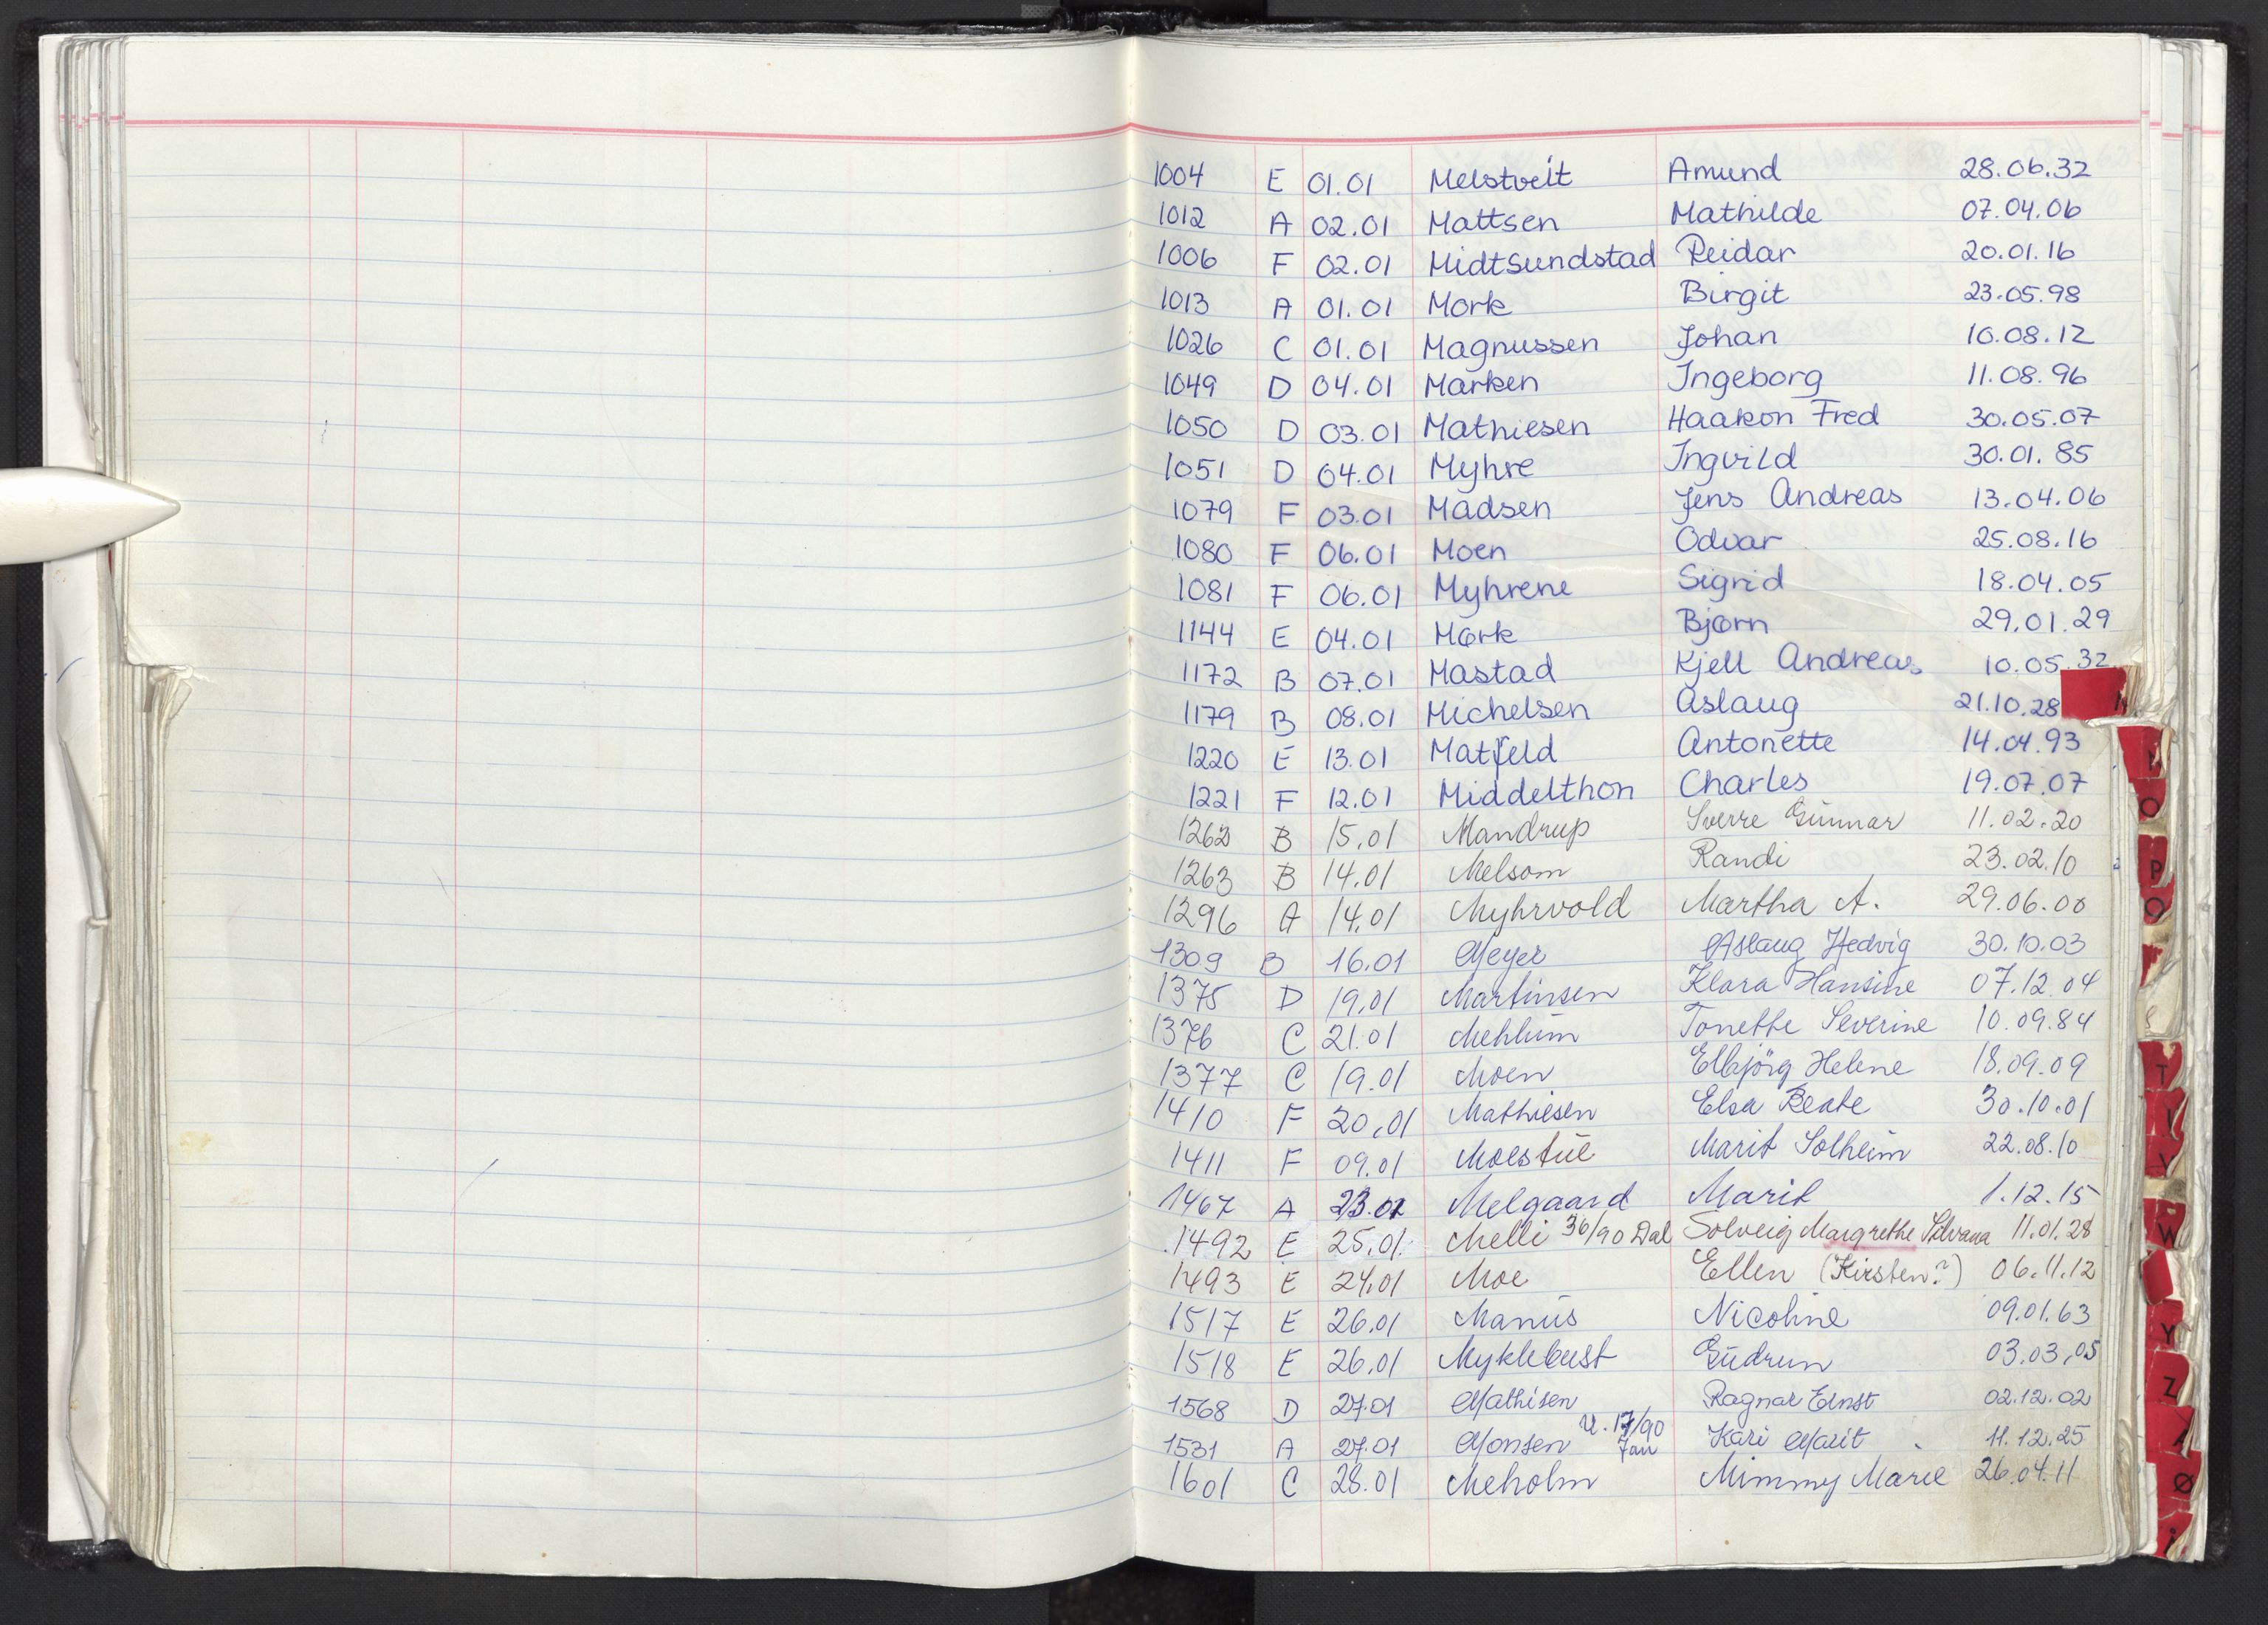 1004 E 01.01 Melstveit Amund 28.06.32
1012 A 02.01 Mattsen Mathilde 07.04.06
1006 F 02.01 Midtsundstad Reidar 20.01.16
1013 A 01.01 Mork Birgit 23.05.98
1026 C 01.01 Magnussen Johan 10.08.12
1049 D 04.01 Marken Ingeborg 11.08.96
1050 D 03.01 Mathiesen Haakon Fred 30.05.07
1051 D 04.01 Myhre Ingvild 30.01.85
1079 F 03.01 Madsen Jens Andreas 13.04.06
1080 F 06.01 Moen Odvar 25.08.16
1081 F 06.01 Myhrene Sigrid 18.04.05
1144 E 04.01 Mørk Bjørn 29.01.29
1172 B 07.01 Mastad Kjell Andreas 10.05.32
1179 B 08.01 Michelsen Aslaug 21.10.28
1220 E 13.01 Matfeld Antonette 14.04.93
1221 F 12.01 Middelthon Charles 19.07.07
1262 B 15.01 Mandrup Sverre Gunnar 11.02.20
1263 B 14.01 Melsom Randi 23.02.10
1296 A 14.01 Myhrvold Martha A. 29.06.00
1309 B 16.01 Meyer Aslaug Hedvig 30.10.03
1375 D 19.01 Martinsen Klara Hansine 07.12.04
1376 C 21.01 Mehlum Tonette Severine 10.09.84
1377 C 19.01 Moen Elbjörg Helene 18.09.09
1410 F 20.01 Mathiesen Elsa Beate 30.10.01
1411 F 09.01 Moestue Marit Solheim 22.08.10
1467 A 23.01 Melgaard Marit 1.12.15
1492 E 25.01. Melli 36/90 Dal Solveig Margrethe Silvana 11.01.28
1493 E 24.01 Moe Ellen (Kirsten?) 06.11.12
1517 E 26.01 Manus Nicoline 09.01.63
1518 E 26.01 Myklebust Gudrun 03.03.05
1568 D 27.01 Mathisen Ragnar Ernst 02.12.02
1531 A 27.01 Monsen U. 17/90 Jan Kari Marit 11.12.25
1601 C 28.01 Meholm Mimmy Marie 26.04.11
O
P
Q
T
V
W
Y
Z
Ø